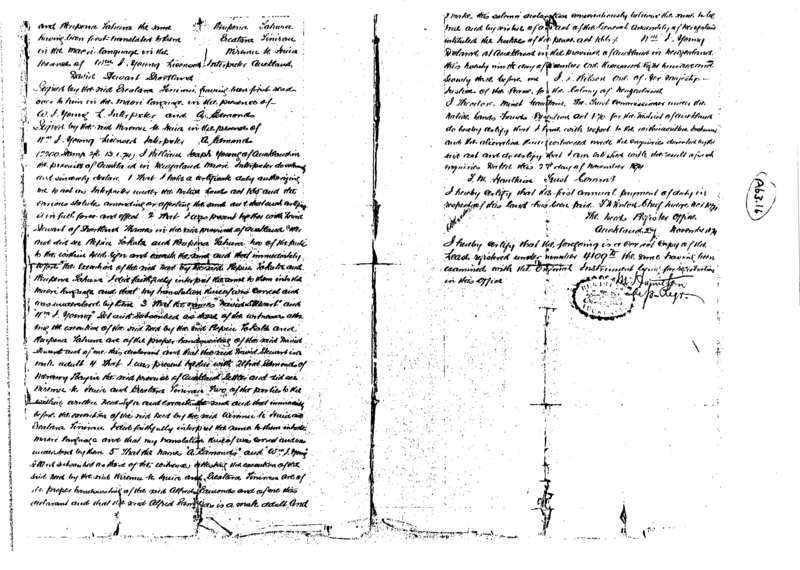 and Meupena Tahura the same Meupena Tahura
having been first translated to them Eratana Tinirau
in the Maori language in the Wiremu te Inia
presence of Wm J. Young Licensed Interpreter Auckland,
David Stewart Shortland
Signed by the said Eratana Tinirau having been first read
over to him in the Maori language in the presence of
W. J. Young L. Interpreter and A. Edmonds
Signed by the said Wiremu te Inia in the presence of
Wm J. Young Licensed Interpreter A. Edmonds
I William Joseph Young of Auckland in
the province of Auckland in New Zealand Maori Interpreter do solemnly
and sincerely declare 1 That I hold a certificate duly authorizing
me to act as Interpreter under the Native Lands Act 1865 and the
various statutes amending or affecting the same and that such certificate
is in full force and effect 2 That I was present together with David
Stewart of Shortland Thames in the said province of Auckland
and did see Repia Tokata and Meupena Tahura two of the parties
to the within Deed sign and execute the same and that immediately
before the execution of the said Deed by the said Repia Tokata and
Meupena Tahura I did faithfully interpret the same to them into the
Maori language and that my translation thereof was correct and
was understood by them 3 That the names "David Stewart" and
"Wm J. Young" set and subscribed as those of the witnesses attes
ting the execution of the said Deed by the said Repia Tokata and
Meupena Tahura are of the proper handwriting of the said David
Stewart and of me this declarant and that the said David Stewart is a
male adult 4 That I was present together with Alfred Edmonds of
in the said province of Auckland Settler and did see
Wiremu te Inia and Eratana Tinirau two of the parties to the
within Deed sign and execute the same and that immediately
before the execution of the said Deed by the said Wiremu te Inia and
Eratana Tinirau I did faithfully interpret the same to them into the
Maori language and that my translation thereof was correct and was
understood by them 5 That the names "A. Edmonds" and "Wm J. Young"
set and subscribed as those of the witnesses attesting the execution of the
said Deed by the said Wiremu te Inia and Eratana Tinirau are of
the proper handwriting of the said Alfred Edmonds and of me this
declarant and that the said Alfred Edmonds is a male adult. And
I make this solemn declaration conscientiously believing the same to be
true and by virtue of an act of the General Assembly of New Zealand
intituled the Justices of the peace act 1866. Wm J. Young
Declared at Auckland in the province of Auckland in New Zealand
this twenty ninth day of September one thousand eight hundred and
seventy three before me J. L. Wilson one of Her Majesty's
Justices of the Peace for the Colony of New Zealand
I Theodore Minet Haultain The Trust Commissioner under the
Native Lands Frauds Prevention Act 1870 for the District of Auckland
do hereby certify that I have with respect to the within written Instrument
and the alienation thereby witnessed made the enquiries directed by the
said act and do certify that I am satisfied with the result of such
enquiries Dated this day of November 1874
T. M. Haultain Trust Commr
I hereby certify that the first annual payment of duty in
respect of this land has been paid. F D Fenton Chief Judge Nov 1874
The Deeds Register Office
Auckland November 1874
I hereby certify that the foregoing is a correct copy of the
Deed registered under number 4409 the same having been
examined with the Original Instrument lying for registration
in this office
A63.16